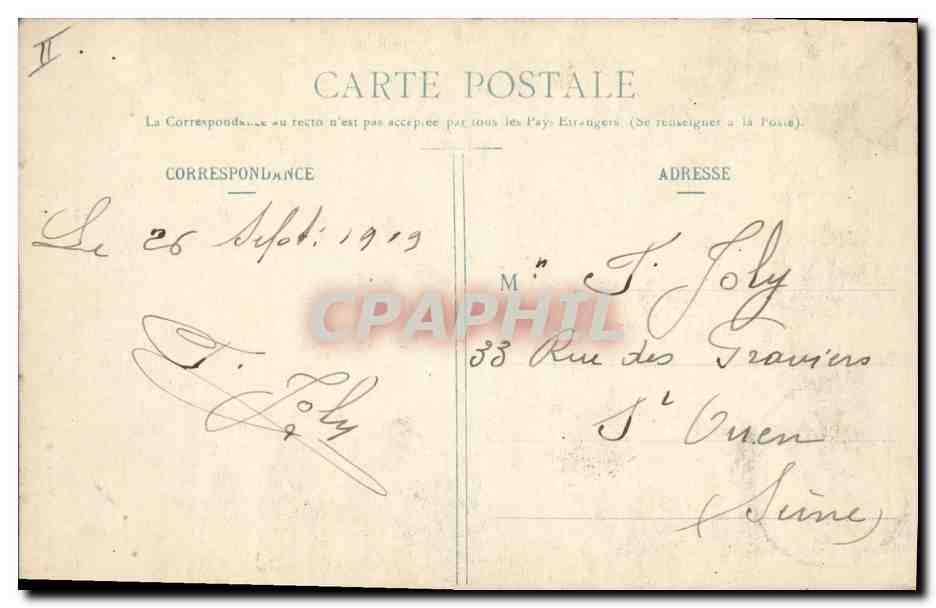 II.
CARTE POSTALE
La Correspondance au recto n'est pas acceptée par tous les Pays Etrangers. (Se renseigner à la Poste).
CORRESPONDANCE
ADRESSE
Le 26 Sept: 1919
T. Joly
M.n T. Joly
33 Rue des Graviers
St Ouen
(Seine)
CPAPHIL